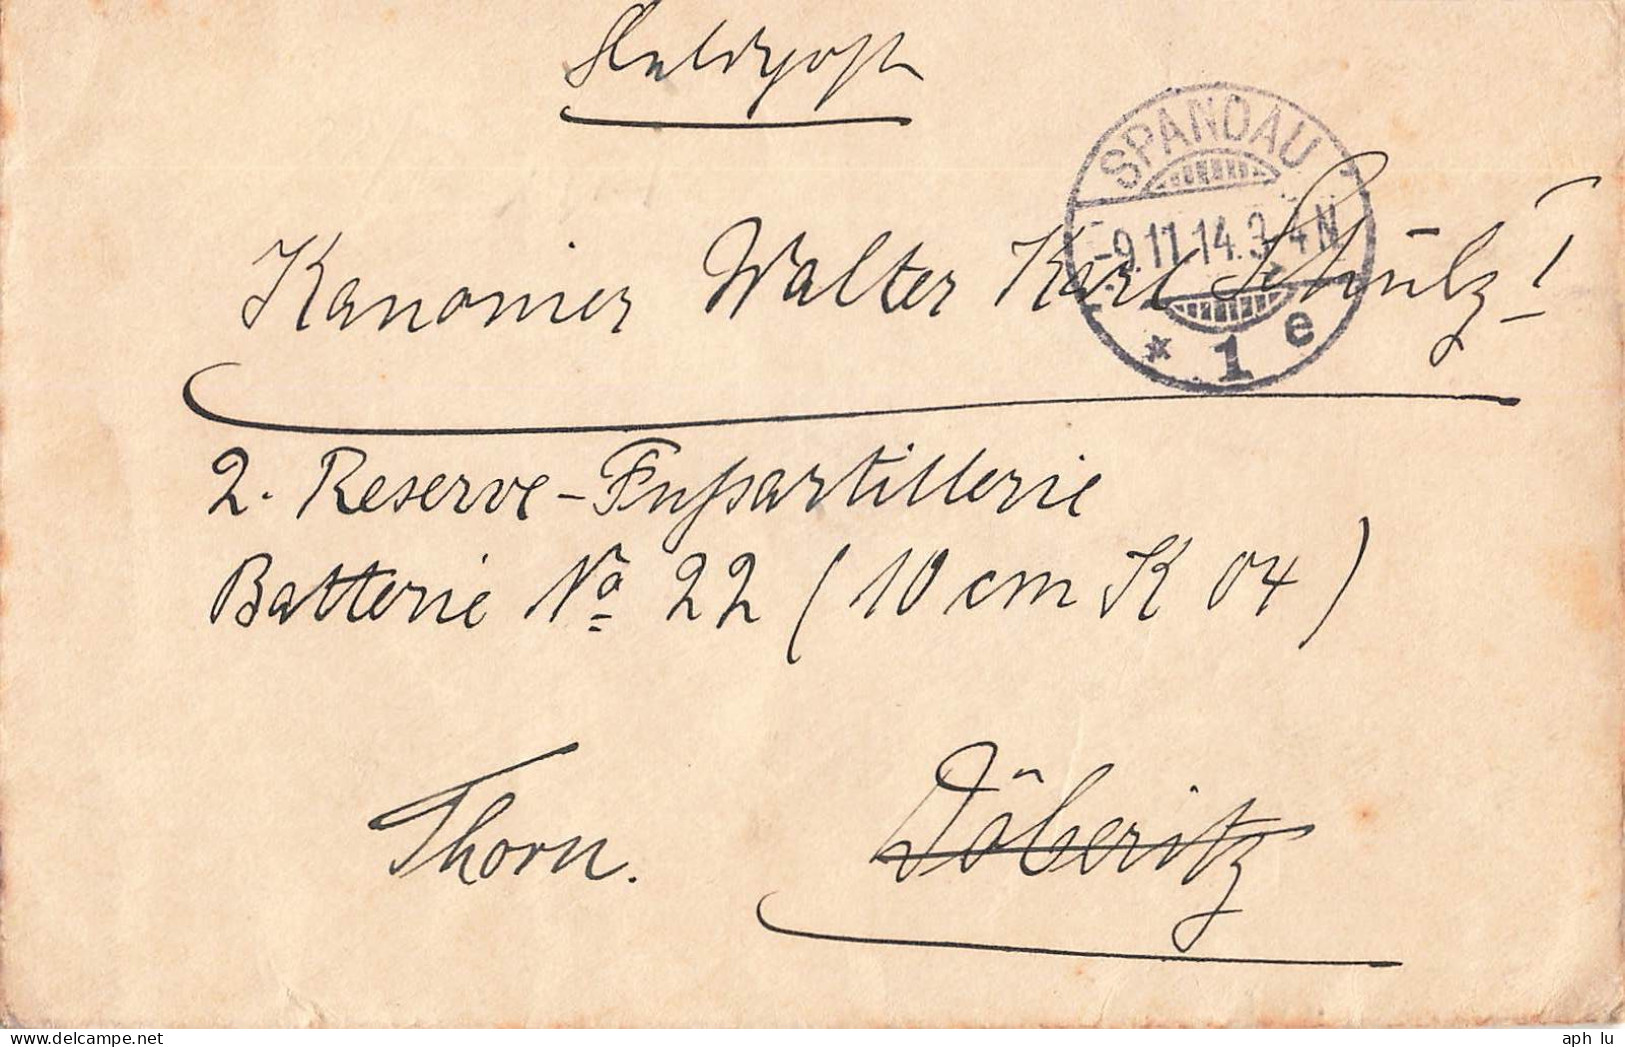 Feldpost
SPANDAU
-9.11.14.3-4N
* 1 e
Kanonier Walter Karl Schulz I
2. Reserve-Fußartillerie
Batterie No 22 (10 cm K 04)
Thorn. Döberitz
aph lu